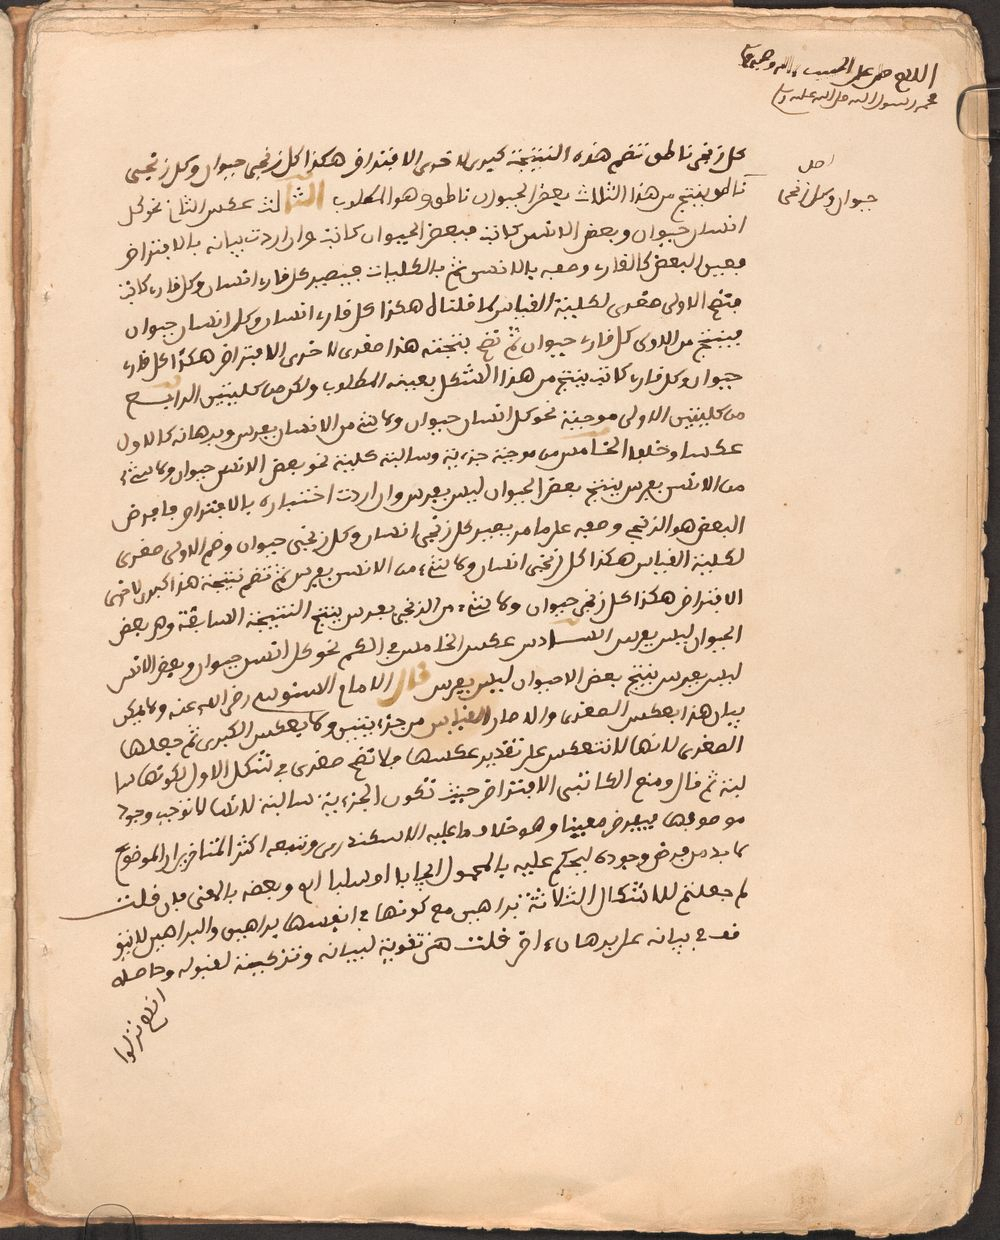 اللهم صل على الحبيب
محمد رسول الله صلى الله عليه وسلم
اصل
حيوان وكل زنجي
كل زنجي ناطق تضم هذه النتيجة كبرى لاخرى الافتراض هكذا كل زنجي حيوان وكل زنجي
ناطق ينتج من هذا الثالث بعض الحيوان ناطق وهو المطلوب الثالث عكس الثاني نحو كل
انسان حيوان وبعض الانسان كاتب فبعض الحيوان كاتب وان اردت بيانه بالافتراض
فعين البعض كالقارء وصفه بالانسان ثم بالكليات فيصير كل قارء انسان وكل قارء كاتب
فتضم الاولى صغرى لكلية القياس كما قلنا هكذا كل قارء انسان وكل انسان حيوان
فينتج من الاول كل قارء حيوان ثم تضم نتيجته هذا صغرى لاخرى الافتراض هكذا كل قارء
حيوان وكل قارء كاتب ينتج من هذا الشكل بعينه المطلوب ولكن من كليتين الرابع
من كليتين الاولى موجبة نحو كل انسان حيوان ولا شيء من الانسان بفرس وبرهانه كالاول
عكسا وخلفا الخامس من موجبة جزءية وسالبة كلية نحو بعض الانسان حيوان ولا شيء
من الانسان بفرس ينتج بعض الحيوان ليس بفرس وان اردت اختباره بالافتراض فافرض
البعض هو الزنجي وصفه على ما مر يصير كل زنجي انسان وكل زنجي حيوان وضم الاولى صغرى
لكلية القياس هكذا كل زنجي انسان ولا شيء من الانسان بفرس ثم تضم نتيجة هذا كبرى لاخرى
الافتراض هكذا كل زنجي حيوان ولا شيء من الزنجي بفرس ينتج النتيجة السابقة وهي بعض
الحيوان ليس بفرس السادس عكس الخامس في الكم نحو كل انسان حيوان وبعض الانسان
ليس بفرس ينتج بعض الحيوان ليس بفرس قال الامام السنوسي رضي الله عنه ولا يمكن
بيان هذا بعكس الصغرى والا صار القياس من جزءيتين ولا بعكس الكبرى ثم جعلها
الصغرى لانها لا تنعكس على تقدير عكسها ولا تضم صغرى في شكل الاول لكونها سا
لبة ثم قال ومنع الكاتبي الافتراض حيث تكون الجزءية سالبة لانها لا توجب وجود
موضوعها فيفرض معينا وهو خلاف ما عليه الاسكندري وتبعه اكثر المتاخرين اذ الموضوع
لا بد من فرض وجوده ليحكم عليه بالمحمول ايجابا او سلبا اه وبعضه بالمعنى فان قلت
لم جعلتم للاشكال الثلاثة براهين مع كونها في انفسها براهين والبراهين لا يتو
قف في بيانه على برهان اخر قلت هي تقوية لبيانه وتزكية لقبوله وحاصله